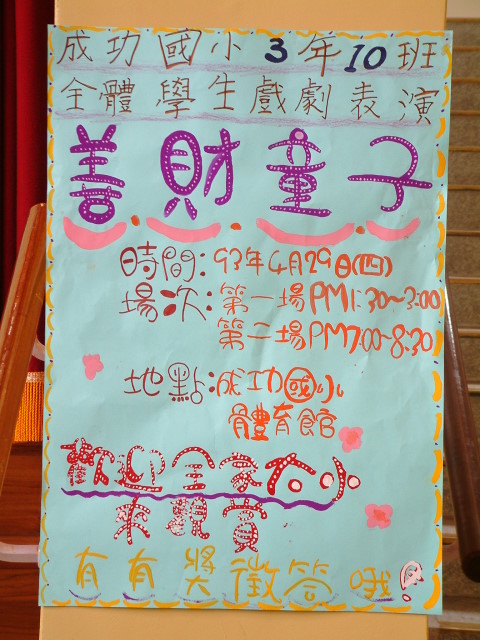 成功國小3年10班
全體學生戲劇表演
善財童子
時間:93年4月29日(四)
場次:第一場PM1:30~3:00
第二場PM7:00~8:30
地點:成功國小
體育館
歡迎全家大小
來觀賞
有有獎徵答哦!